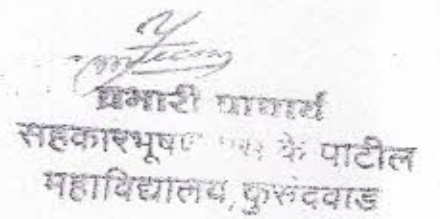 प्रभारी प्राचार्य
सहकारभूषण एस के पाटील
महाविद्यालय, कुरुंदवाड